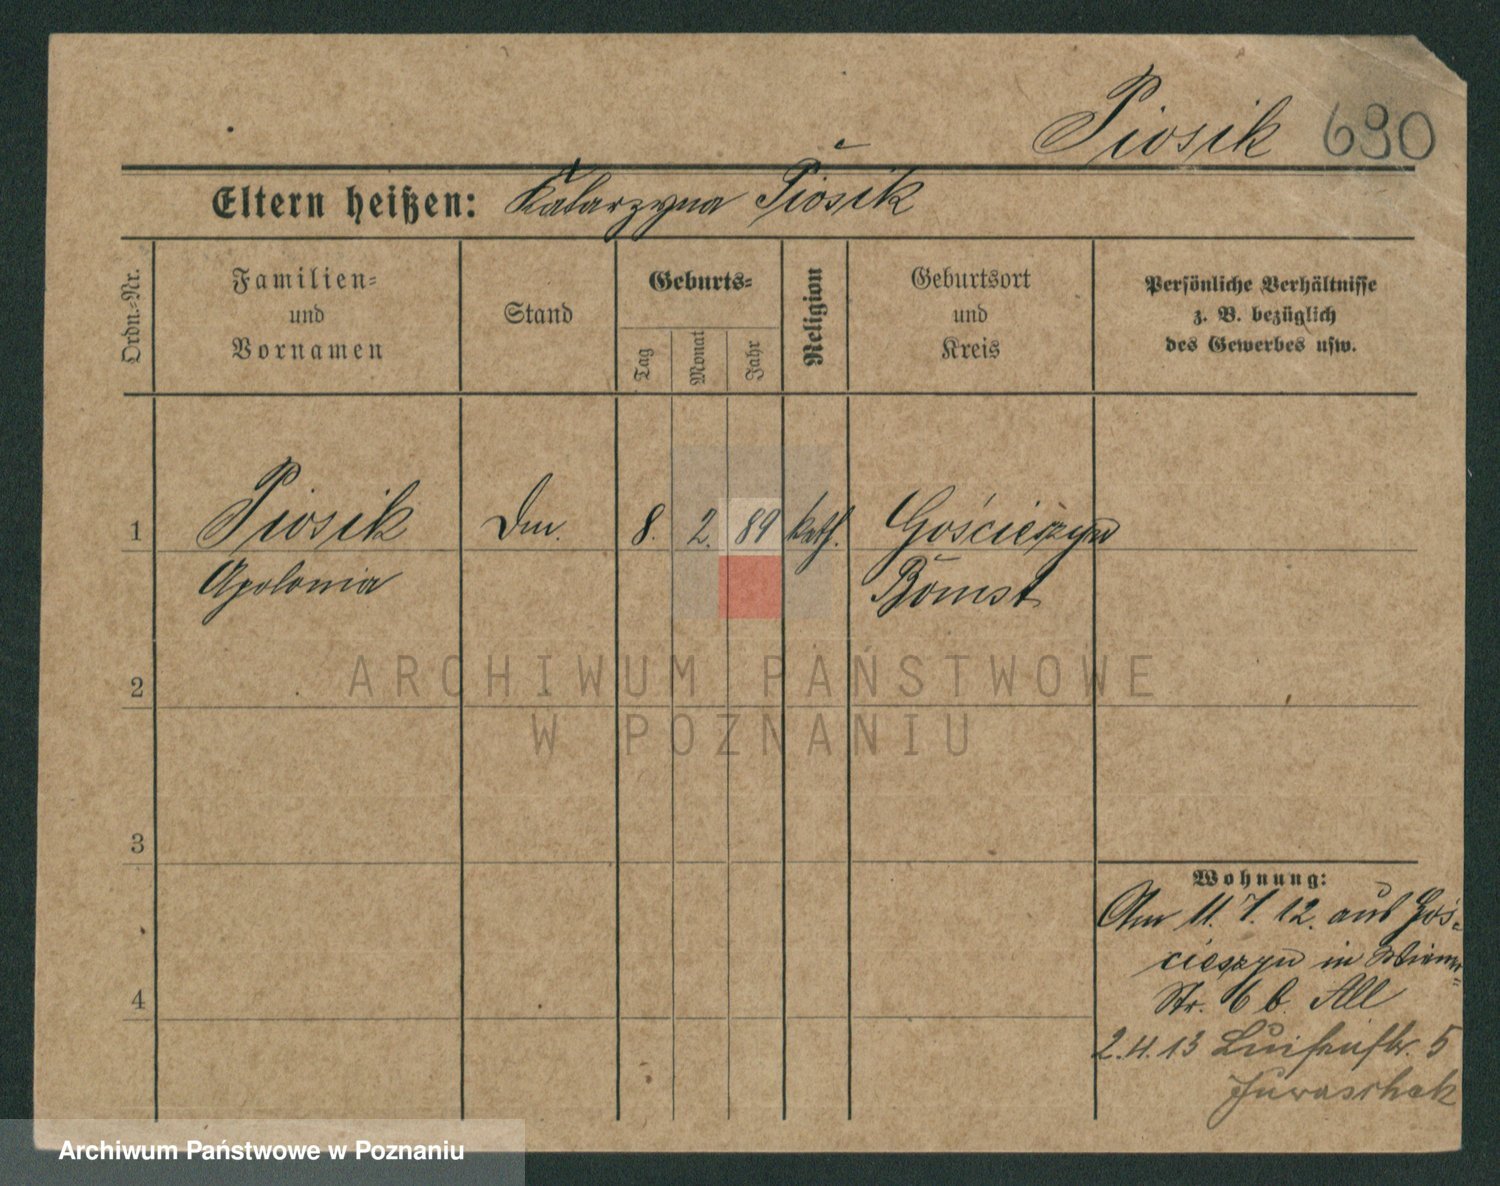 Piosik 690
Eltern heißen: Katarzyna Piosik
Ordn.-Nr.
Familien-
und
Vornamen
Stand
Geburts-
Tag
Monat
Jahr
Religion
Geburtsort
und
Kreis
Persönliche Verhältnisse
z. B. bezüglich
des Gewerbes usw.
1 Piosik 8. 2. 89 kath. Gościeszyn
Apolonia Bomst
ARCHIWUM PAŃSTWOWE
W POZNANIU
2
3
4
Wohnung:
Am 11. 7. 12. aus Goś-
cieszyn in
Str. 6 b. All
2.4.13 Luisenstr. 5
Juraschek
Archiwum Państwowe w Poznaniu